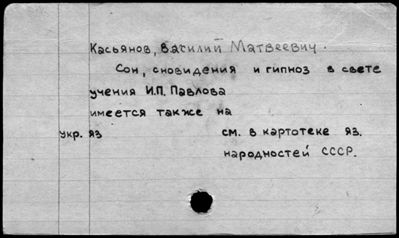 Касьянов, Василий Матвеевич.
Сон, сновидения и гипноз в свете
учения И.П. Павлова
имеется также на
укр. яз см. в картотеке яз.
народностей СССР.